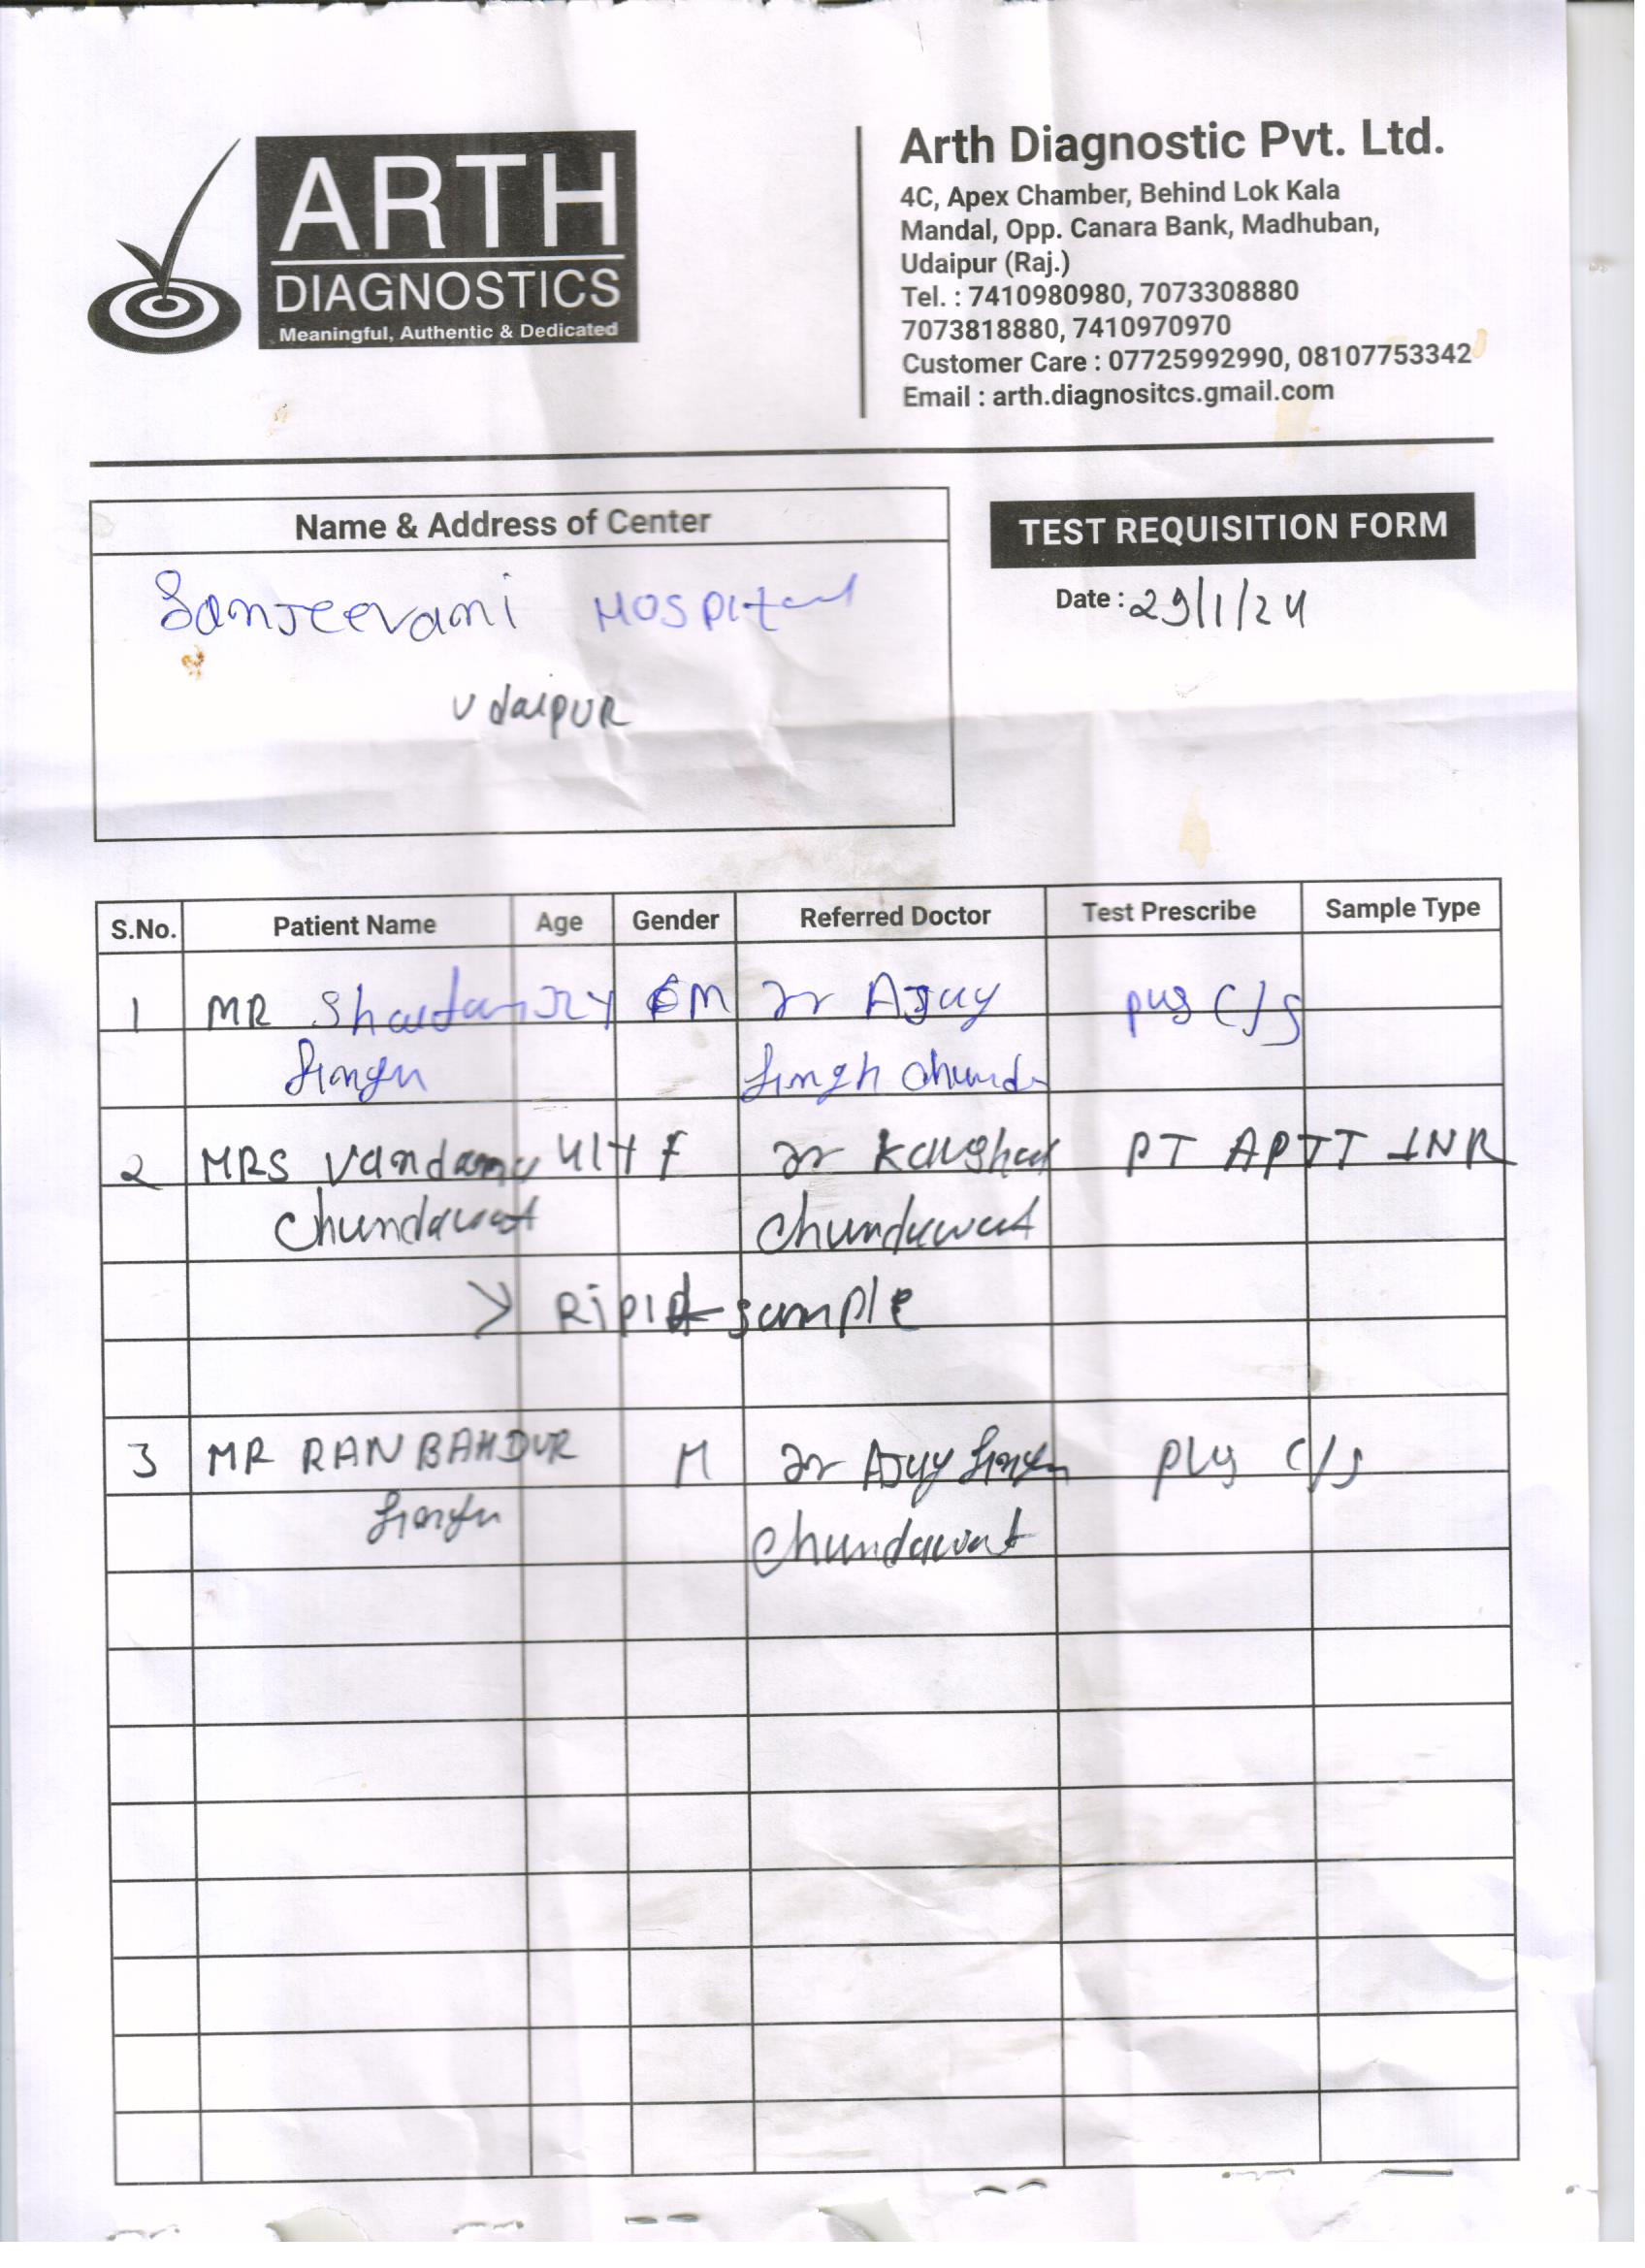 ARTH
DIAGNOSTICS
Meaningful, Authentic & Dedicated
Arth Diagnostic Pvt. Ltd.
4C, Apex Chamber, Behind Lok Kala
Mandal, Opp. Canara Bank, Madhuban,
Udaipur (Raj.)
Tel. : 7410980980, 7073308880
7073818880, 7410970970
Customer Care : 07725992990, 08107753342
Email : arth.diagnositcs.gmail.com
Name & Address of Center
Sanjeevani Hospital
Udaipur
TEST REQUISITION FORM
Date : 29/1/24
S.No. Patient Name Age Gender Referred Doctor Test Prescribe Sample Type
1 MR M Dr Ajay pus C/S
Singh Singh Chund
2 MRS Vandana F Dr Kaushal PT APTT INR
Chundawat Chundawat
sample
3 MR RAN BAHDUR M Dr Ajay Singh C/S
Singh Chundawat